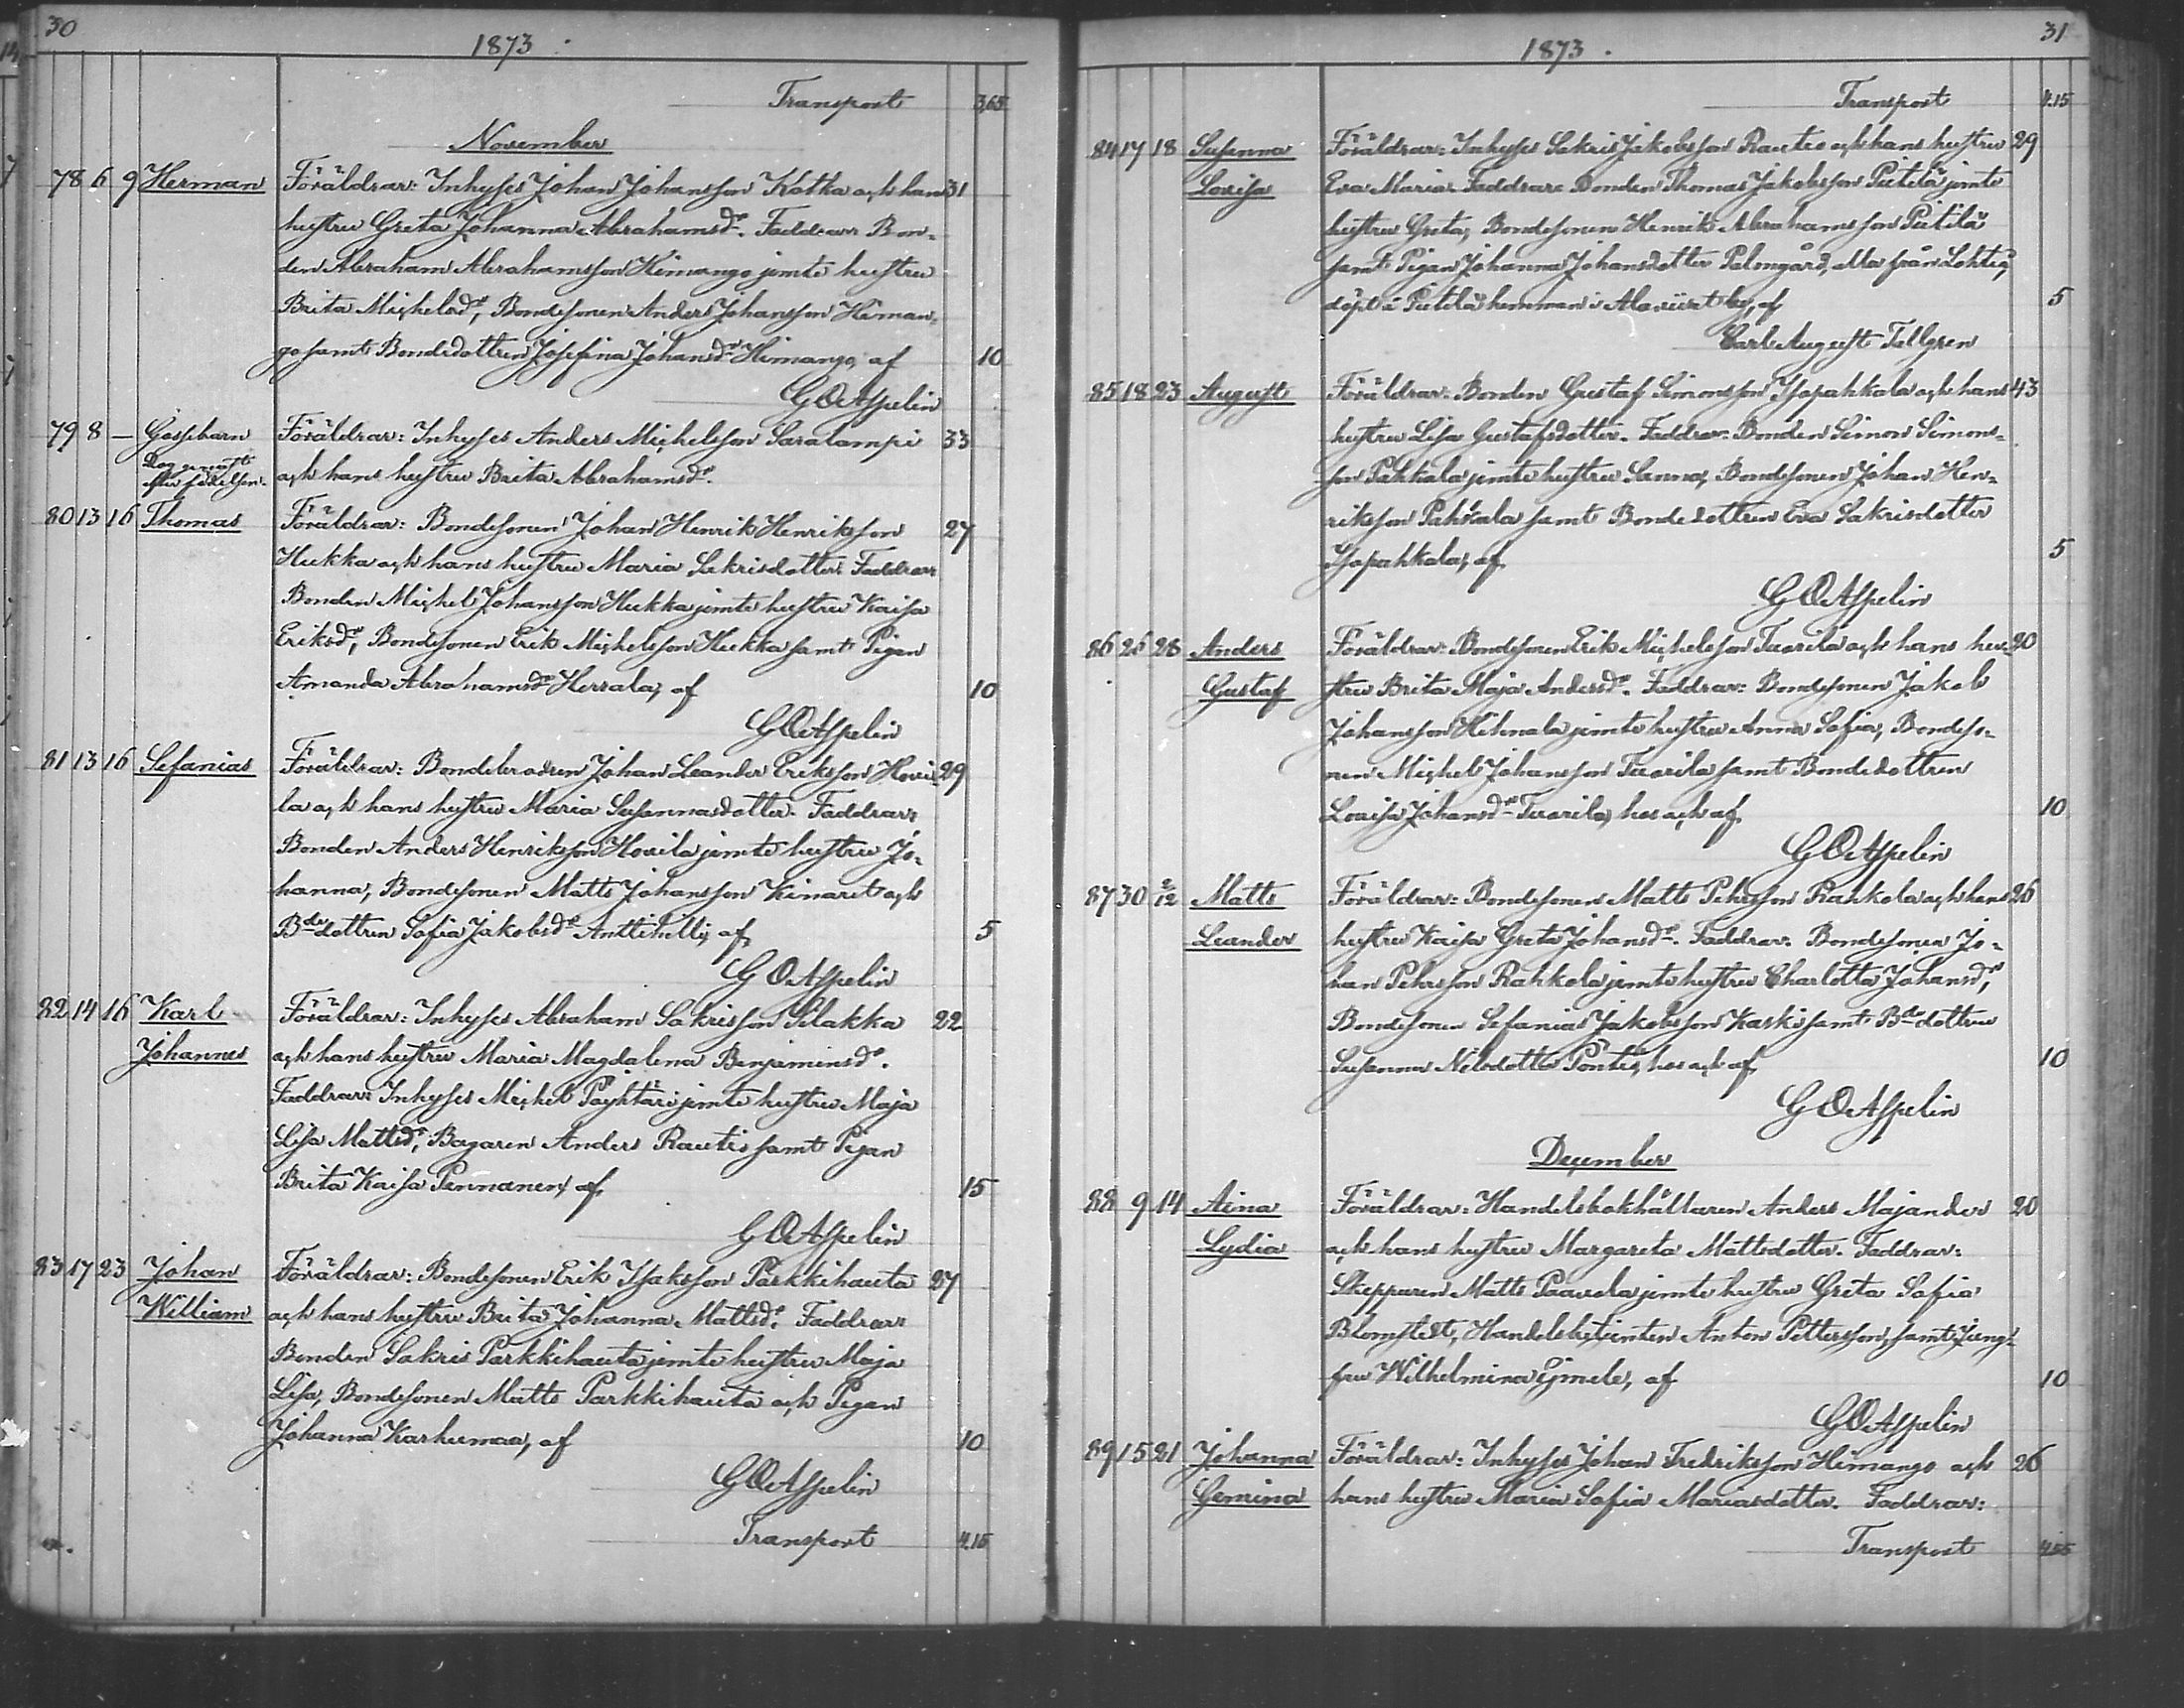 30
1873.
Transport 3,65
November
78 6 9 Herman Föräldrar: Inhyses Johan Johansson Kotka och hans 31
hustru Greta Johanna Abrahamsdr. Faddrar: Bon-
den Abraham Abrahamsson Himango jemte hustru
Brita Michelsdr, Bondesonen Anders Johansson Himan-
go samt Bondedottren Josefina Johansdr Himango, af 10
G O Aspelin
79 8 — Gossebarn Föräldrar: Inhyses Anders Michelsson Saralampi 33
Dog genast
efter födelsen. och hans hustru Brita Abrahamsdr.
80 13 16 Thomas Föräldrar: Bondesonen Johan Henrik Henriksson 27
Hukka och hans hustru Maria Sakrisdotter. Faddrar:
Bonden Michel Johansson Hukka jemte hustru Kaisa
Eriksdr, Bondesonen Erik Michelsson Hukka samt Pigan
Amanda Abrahamsdr Herrala, af 10
G O Aspelin
81 13 16 Sefanias Föräldrar: Bondebrodren Johan Leander Eriksson Hovi- 29
la och hans hustru Maria Susannasdotter. Faddrar:
Bonden Anders Henriksson Hovila jemte hustru Jo-
hanna, Bondesonen Matts Johansson Kinaret och
Bdedottren Sofia Jakobsdr Anttihelli, af 5
G O Aspelin
82 14 16 Karl Föräldrar: Inhyses Abraham Sakrisson Silakka 22
Johannes och hans hustru Maria Magdalena Benjaminsdr.
Faddrar: Inhyses Michel Pöyhtäri jemte hustru Maja
Lisa Mattsdr, Bagaren Anders Rautio samt Pigan
Brita Kaisa Pennanen, af 15
G O Aspelin
83 17 23 Johan Föräldrar: Bondesonen Erik Isaksson Parkkihauta 27
William och hans hustru Brita Johanna Mattsdr. Faddrar:
Bonden Sakris Parkkihauta jemte hustru Maja
Lisa, Bondesonen Matts Parkkihauta och Pigan
Johanna Karhumaa, af 10
G O Aspelin
Transport 4.15
31
1873.
Transport 4.15
84 17 18 Susanna Föräldrar: Inhyses Sakris Jakobsson Rautio och hans hustru 29
Lovisa Eva Maria. Faddrar: Bonden Thomas Jakobsson Pietilä jemte
hustru Greta, Bondesonen Henrik Abrahamsson Pietilä
samt Pigan Johanna Johansdotter Palmgård, alla från Lohteå,
döpt i Pietilä hemman i Alaviirt by, af 5
Carl August Tallgren
85 18 23 August Föräldrar: Bonden Gustaf Simonsson Isopahkala och hans 43
hustru Lisa Gustafsdotter. Faddrar: Bonden Simon Simons-
son Pahkala jemte hustru Sanna, Bondesonen Johan Hen-
riksson Pahkala samt Bondedottren Eva Sakrisdotter
Isopahkala, af 5
G O Aspelin
86 26 28 Anders Föräldrar: Bondesonen Erik Michelsson Tuorila och hans hu- 20
Gustaf stru Brita Maja Andersdr. Faddrar: Bondesonen Jakob
Johansson Hihnala jemte hustru Anna Sofia, Bondeso-
nen Michel Johansson Tuorila samt Bondedottren
Lovisa Johansdr Tuorila, hos och af 10
G O Aspelin
87 30 2/12 Matts Föräldrar: Bondesonen Matts Pehrsson Rahkola och hans 26
Leander hustru Kaisa Greta Johansdr. Faddrar: Bondesonen Jo-
han Pehrsson Rahkola jemte hustru Charlotta Johansdr,
Bondesonen Sefanias Jakobsson Kaski samt Bdedottren
Susanna Nilsdotter Pöntiö, hos och af 10
G O Aspelin
December
88 9 14 Aina Föräldrar: Handelsbokhållaren Anders Majander 20
Lydia och hans hustru Margareta Mattsdotter. Faddrar:
Skepparen Matts Paavola jemte hustru Greta Sofia
Blomstedt, Handelsbetjenten Anton Pettersson, samt Jung-
fru Wilhelmina, af 10
G O Aspelin
89 15 21 Johanna Föräldrar: Inhyses Johan Fredriksson Himango och 26
Gemina hans hustru Maria Sofia Mariasdotter. Faddrar:
Transport 4.55